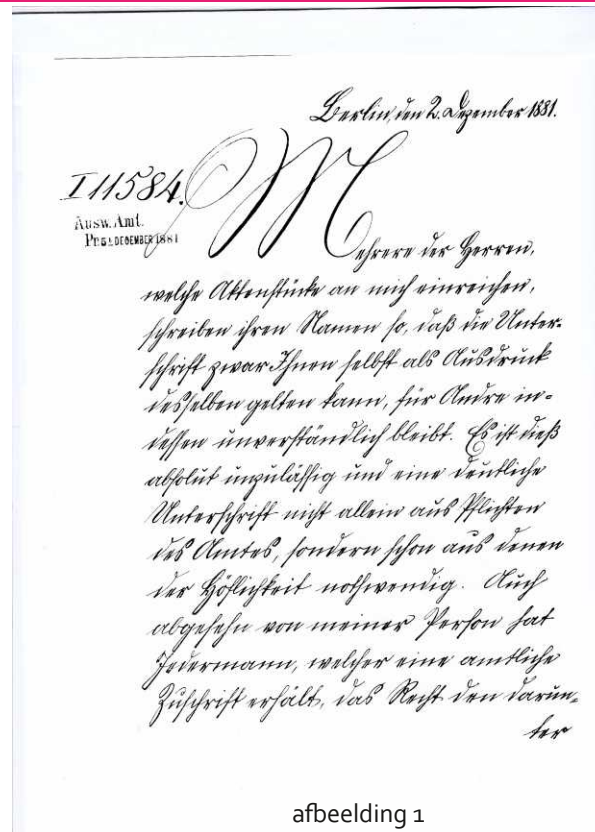 Berlin, den 2. Dezember 1881.
I 11584.
Ausw. Amt.
Pr. 5 DECEMBER 1881
Mehrere der Herren,
welche Aktenstücke an mich einreichen,
schreiben ihren Namen so, daß die Unter-
schrift zwar Ihnen selbst als Ausdruck
desselben gelten kann, für Andre in-
dessen unverständlich bleibt. Es ist dieß
absolut unzulässig und eine deutliche
Unterschrift nicht allein aus Pflichten
des Amtes, sondern schon aus denen
der Höflichkeit nothwendig. Auch
abgesehn von meiner Person hat
Jedermann, welcher eine amtliche
Zuschrift erhält, das Recht den darun-
ter
afbeelding 1